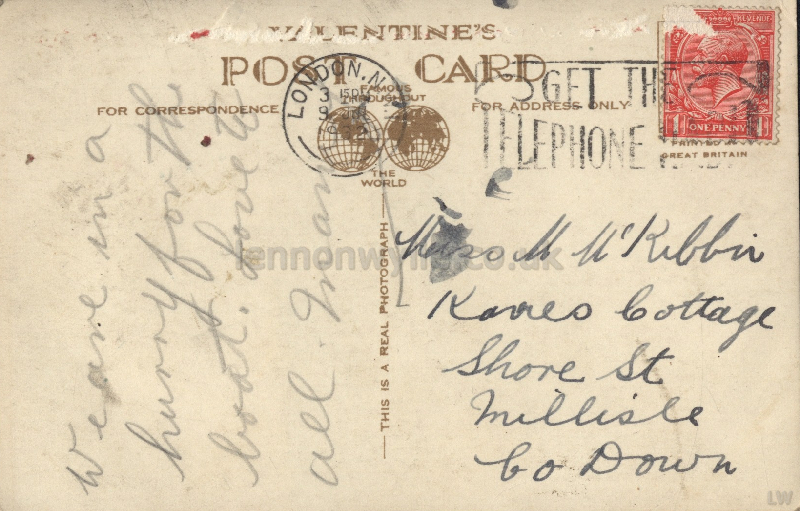 VALENTINE'S
POST CARD
FOR CORRESPONDENCE
FAMOUS
THROUGHOUT
THE
WORLD
FOR ADDRESS ONLY
LONDON. N.
GET THE
TELEPHONE
ONE PENNY
PRINTED IN
GREAT BRITAIN
THIS IS A REAL PHOTOGRAPH
We are in a
hurry for the
boat. Love to
all.
Miss M McKibbin
Cottage
Shore St
Millisle
Co Down
lennonwylie.co.uk
LW